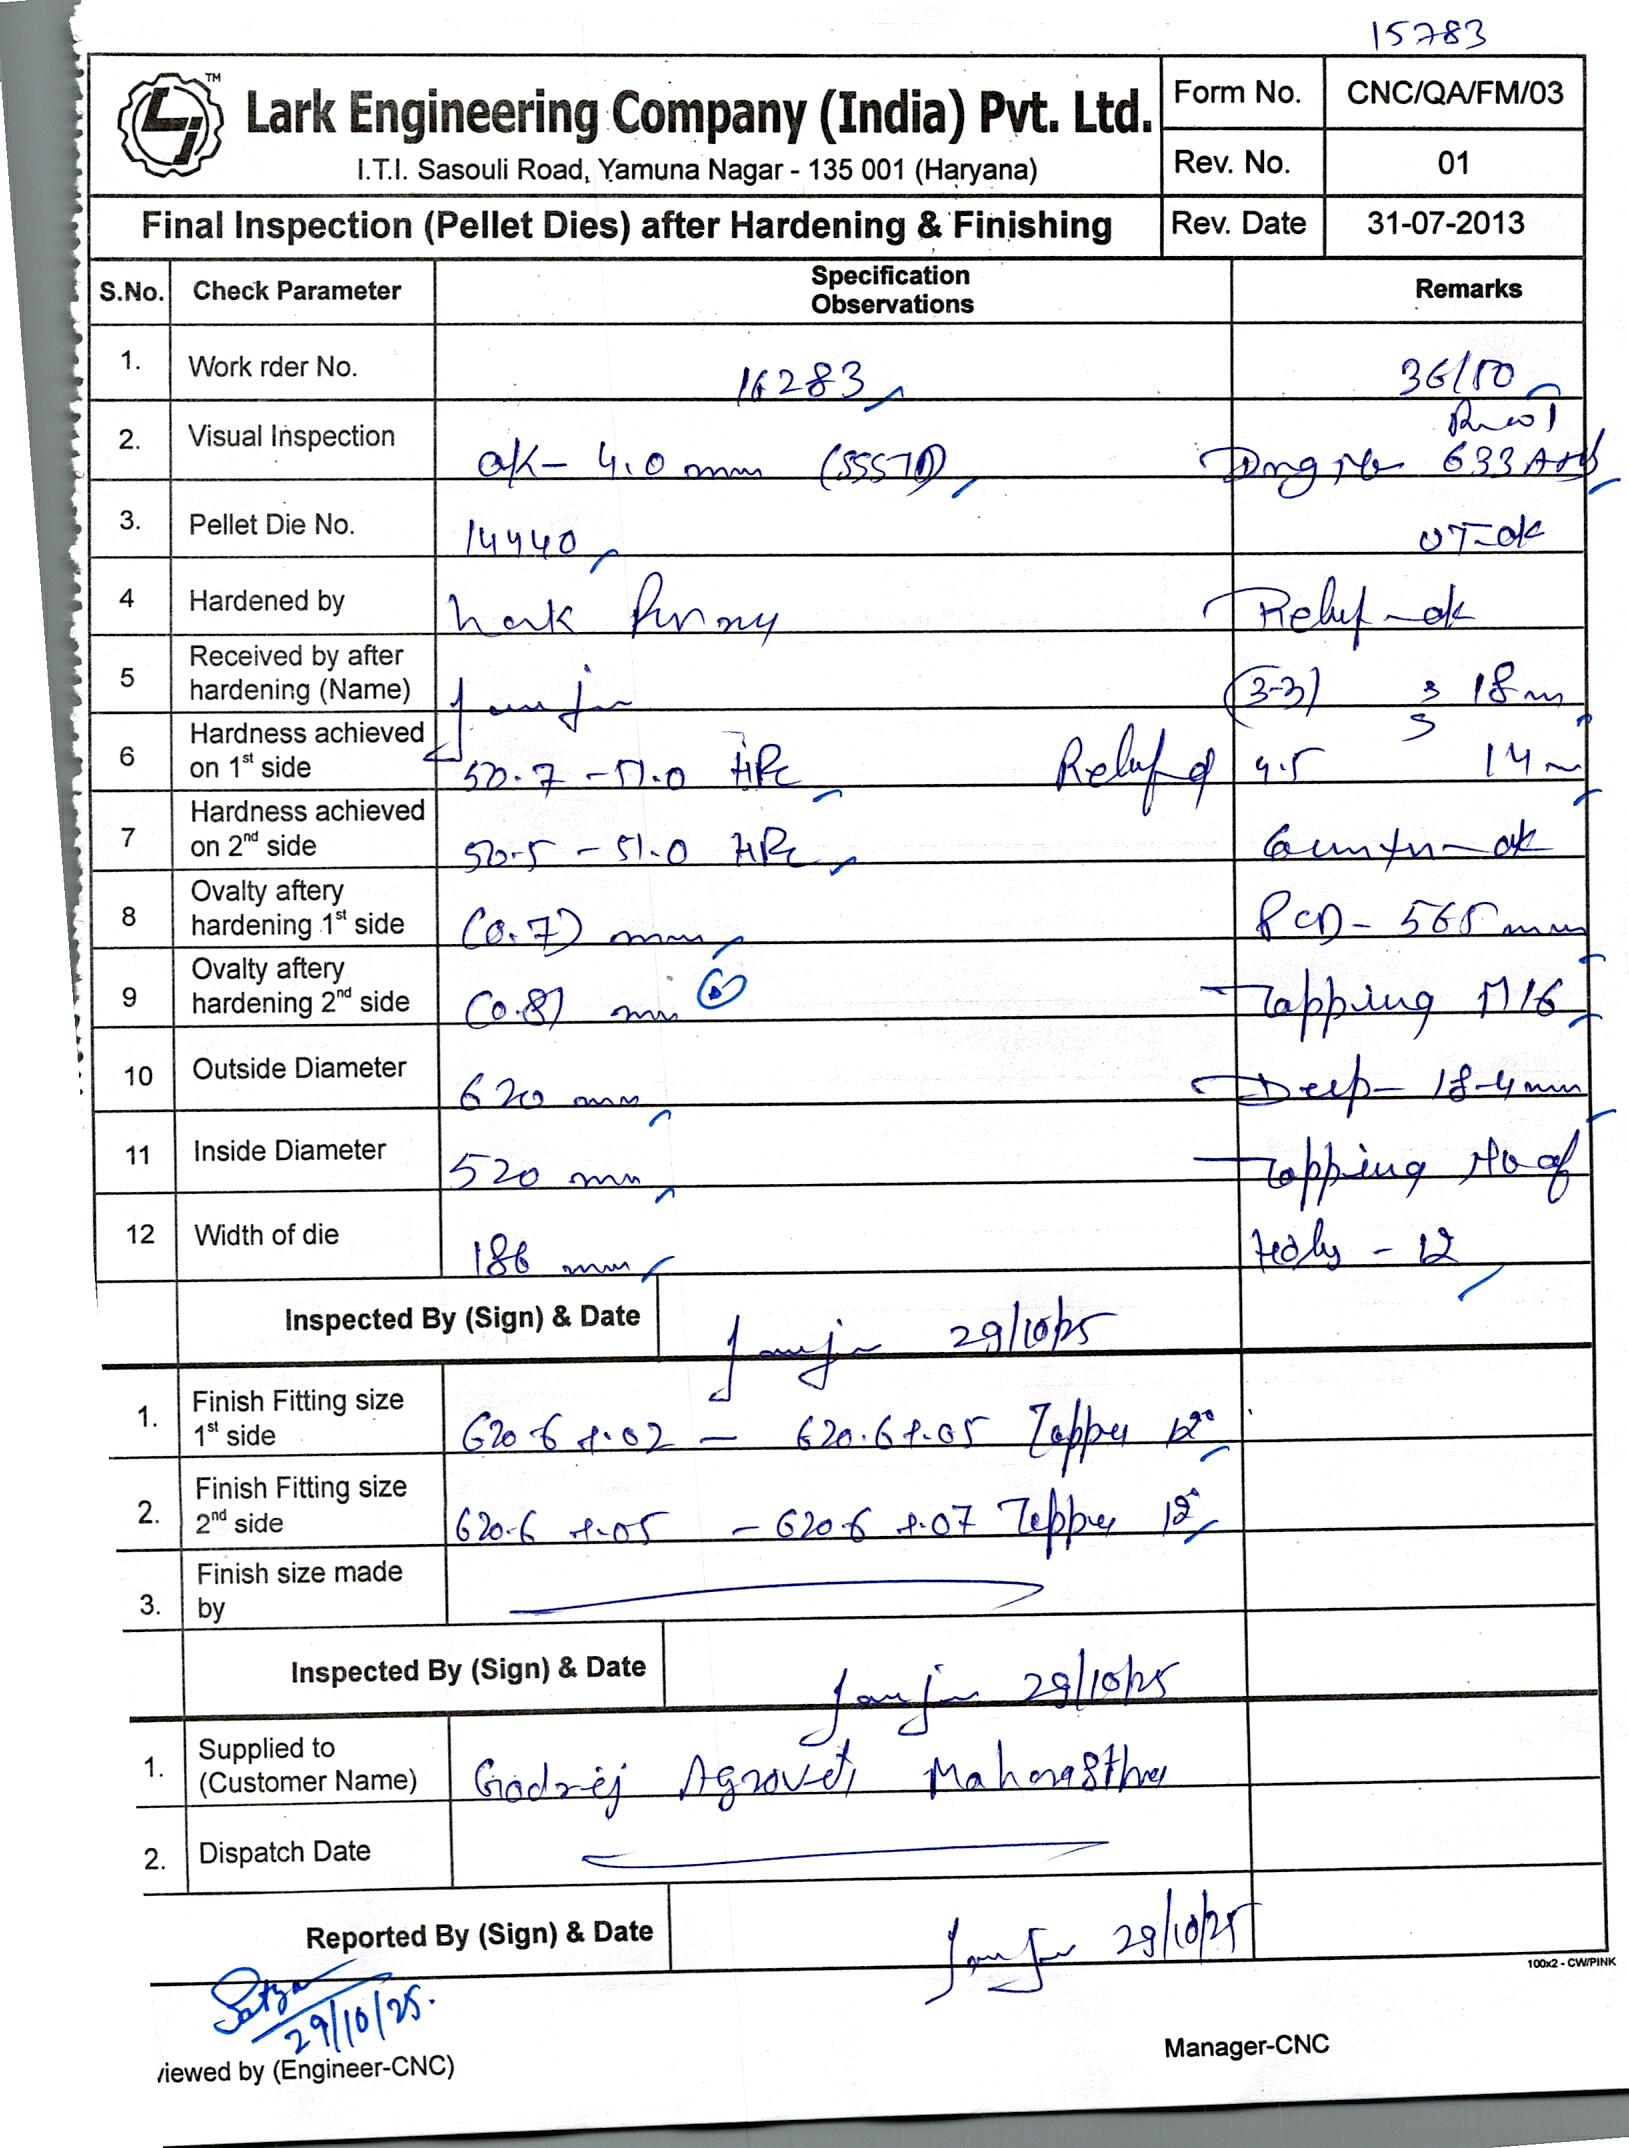 15783
TM
Lark Engineering Company (India) Pvt. Ltd.
I.T.I. Sasouli Road, Yamuna Nagar - 135 001 (Haryana)
Form No. CNC/QA/FM/03
Rev. No. 01
Final Inspection (Pellet Dies) after Hardening & Finishing
Rev. Date 31-07-2013
S.No. Check Parameter Specification Observations Remarks
1. Work rder No. 16283 36/50
2. Visual Inspection ok - 4.0 mm (SSS70) Drg No 633
3. Pellet Die No. 14440 UT-ok
4 Hardened by Lark Relief - ok
5 Received by after hardening (Name) (3-3) 3 18 m
6 Hardness achieved on 1st side 50.7 - 51.0 HRc Relief of 4.5 14 m
7 Hardness achieved on 2nd side 50.5 - 51.0 HRc Counter - ok
8 Ovalty aftery hardening 1st side (0.7) mm PCD - 565 mm
9 Ovalty aftery hardening 2nd side (0.8) mm Tapping M16
10 Outside Diameter 620 mm Deep - 18-4 mm
11 Inside Diameter 520 mm Tapping No of
12 Width of die 186 mm Holes - 12
Inspected By (Sign) & Date 29/10/25
1. Finish Fitting size 1st side 620.6 +.02 - 620.6 +.05 Tapper 12°
2. Finish Fitting size 2nd side 620.6 +.05 - 620.6 +.07 Tapper 12°
3. Finish size made by
Inspected By (Sign) & Date 29/10/25
1. Supplied to (Customer Name) Godrej Agrovet, Maharasthra
2. Dispatch Date
Reported By (Sign) & Date 29/10/25
100x2 - CW/PINK
Satya
29/10/25.
iewed by (Engineer-CNC)
Manager-CNC